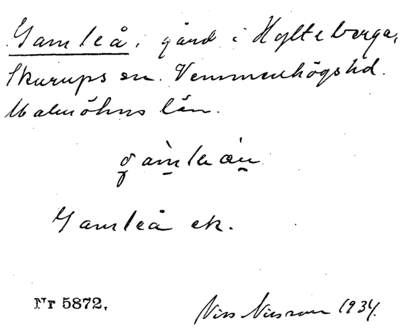 Gamleå, gård i Hylteberga,
Skurups sn. Vemmenhögs hd.
Malmöhus län.
Gamleå ek.
Nr 5872. Nils Nilsson 1934.